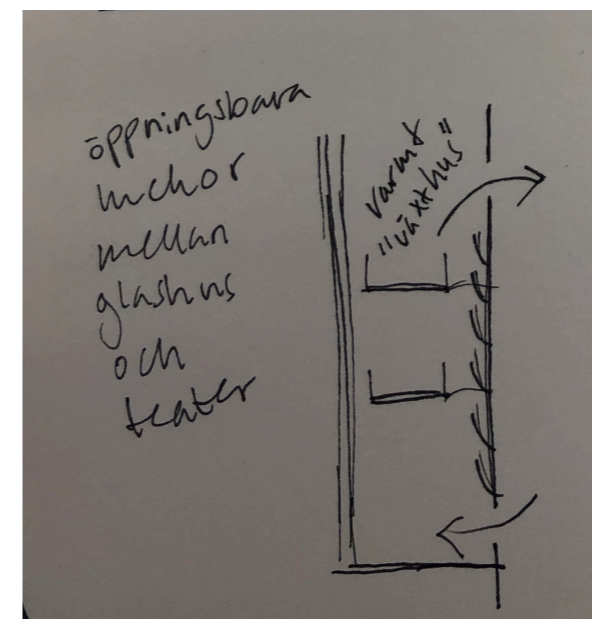 öppningsbara
luckor
mellan
glashus
och
teater
varmt
"växthus"